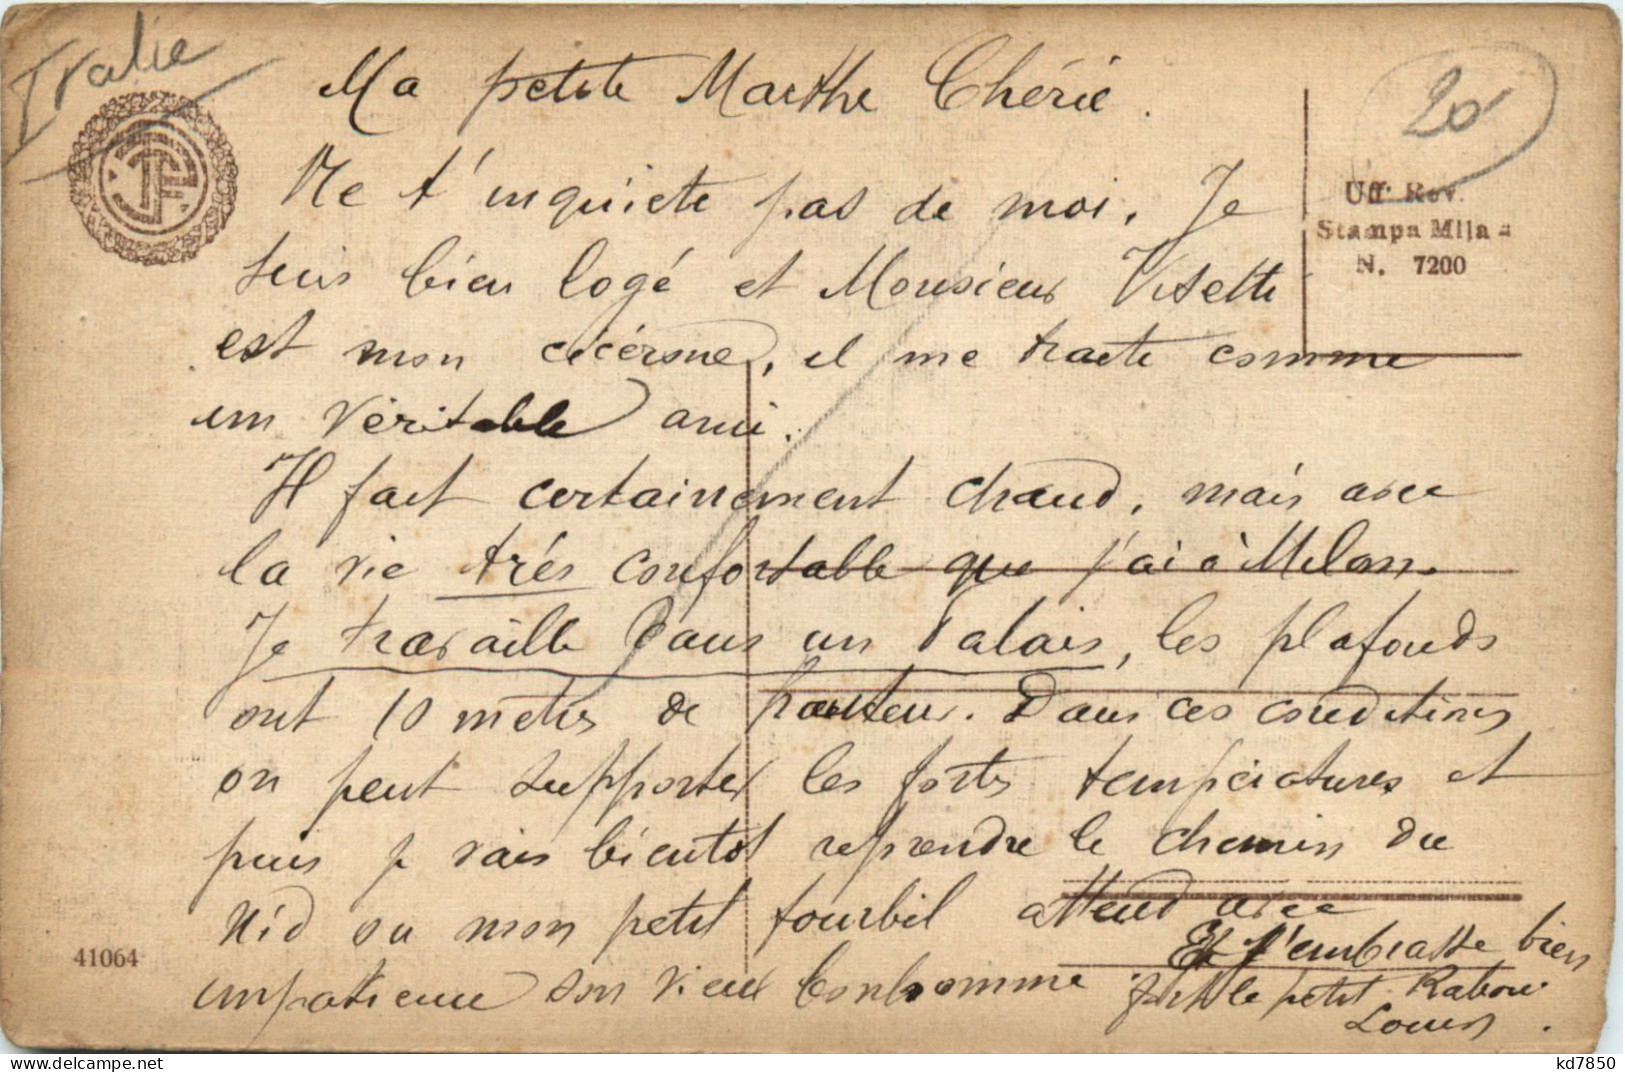 Italie
20
Uff. Rev.
Stampa Milan
N. 7200
Ma petite Marthe Chérie.
Ne t'inquiete pas de moi. Je
suis bien logé et Monsieur
est mon cicérone, il me traite comme
un véritable ami.
Il fait certainement chaud, mais avec
la vie très confortable que j'ai à Milan.
Je travaille dans un Palais, les plafonds
ont 10 metres de hauteur. Dans ces conditions
on peut supporter les fortes températures et
puis je vais bientot reprendre le chemin du
Nid ou mon petit fourbil attend avec
impatience son vieux bonhomme
Et t'embrasse bien
fort le petit
Louis.
41064
kd7850